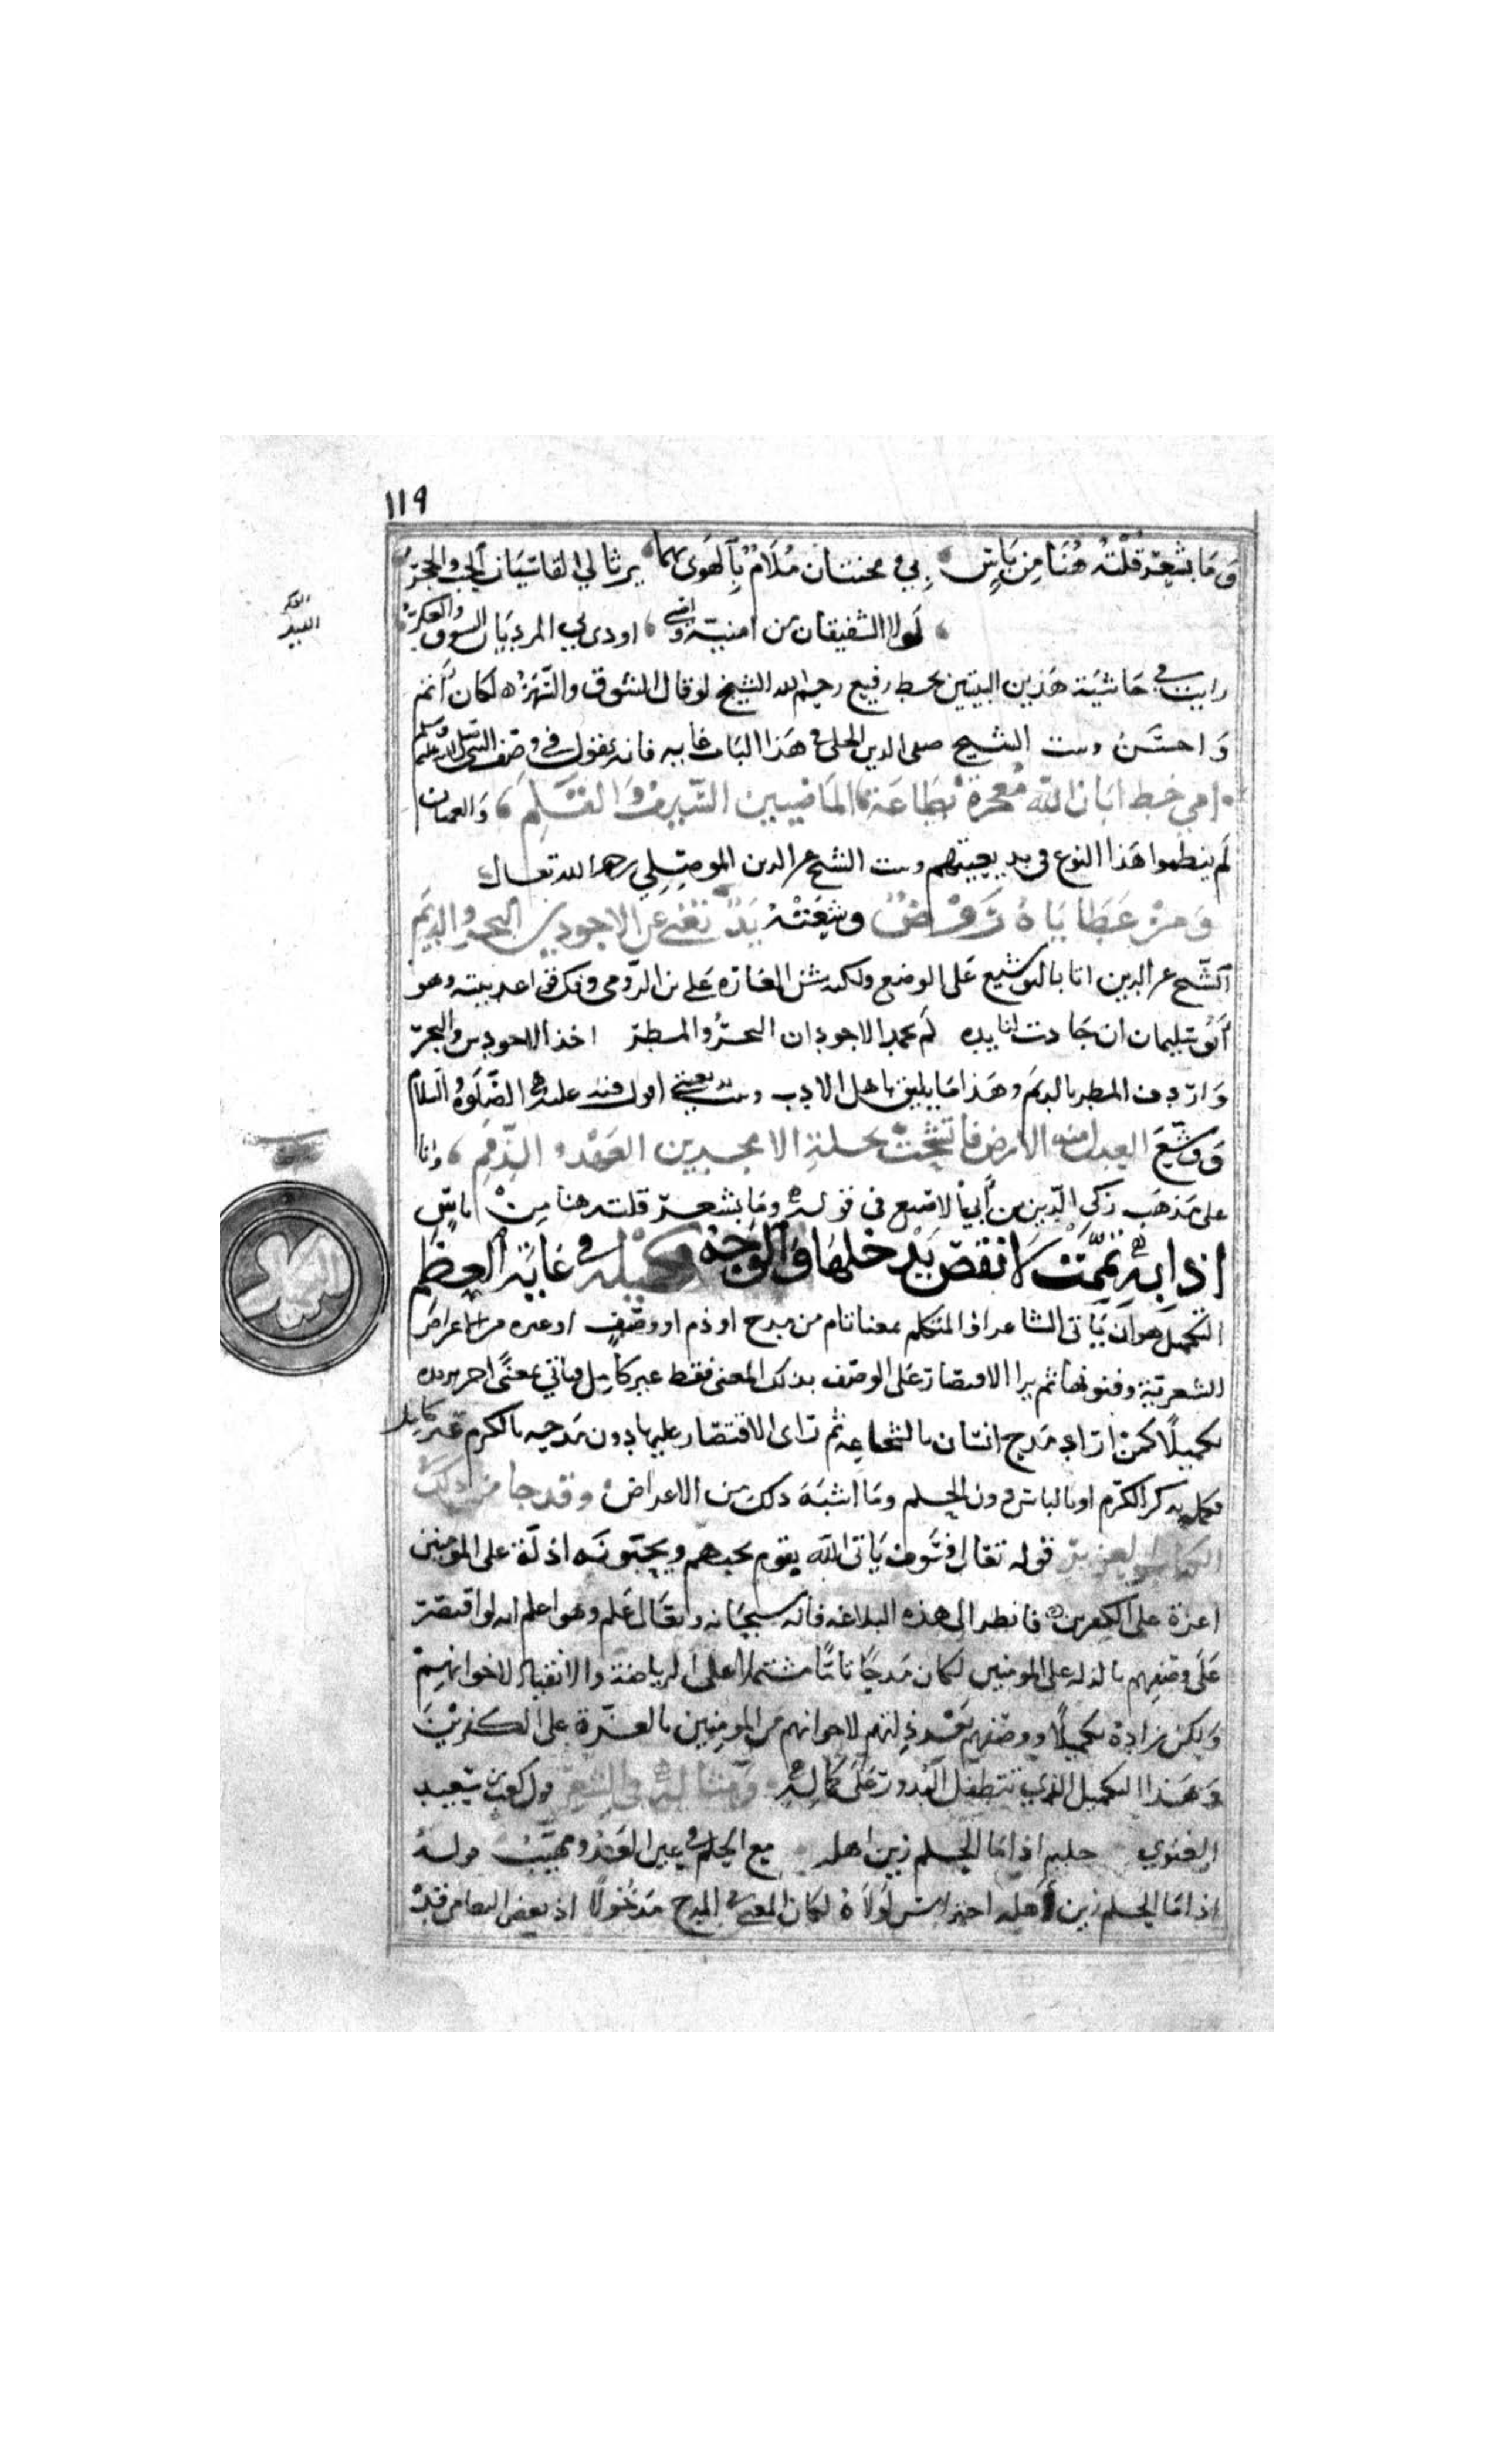 ١١٩
وَمَا بشعرٍ قُلتُهُ هُنَا مِن بَاسٍ بي محنتان مُلَامٌ بِالهَوى بهما يرثا لي القاسيَان الحِبُّ والحجرُ
لَولا الشفيقان من امنيّة واسى اودى بي المرديَان الشوق والفكرُ
الفكر
رايت في حَاشيَة هَذين البيتين بخط رفيع رحم الله الشيخ لو قال الشوق والسهَرُ لكان أتم
وَاحسَن وبيت الشيخ صفي الدين الحلي في هَذا البَاب غايه فانه يقول في وصف النبي صلى الله عليه وسلم
امي خط ابَان الله مُعجزةً بطَاعَة المَاضيين السَّيفِ وَالقَلَمِ وَالعميان
لَم ينظموا هَذا النوع في بديعيتهم وبيت الشيخ عز الدين الموصِلِي رحمه الله تعالى
وَمِن عَطَايَاهُ رَوضٌ وشّعَتْهُ يَدٌ تغني عن الاجودين البَحرِ والدِّيَم
الشيخ عز الدين اتا بالتوشيع عَلى الوضع ولكنه شن الغَارة عَلى بن الرّومي وفك قوَاعد بيته وهو
أبُو سُليمان ان جَادت لنا يده لَم يحمد الاجودان البحرُ والمطرُ اخذ الاجودين والبحرَ
وَاردف المطر بالديَم وهَذا مَا يليق باهل الادب وبيت بديعيتي اقول فيه عليه الصَّلَوةُ والسلام
وَوَشّعَ العدل منه الارض فاتشحت بحلةِ الامجدين العَهْدِ والذِّمَمِ وانا
على مَذهَب زكي الدين بن أبي الاصبع في قولهِ وَمَا بشعرٍ قلته هنا مِنْ بَاسٍ
اذابهِ تمَّمَت لَا نقص يَدخلها وَالوَجهُ تكميله في غايةِ العِظَمِ
التكميل هوَ ان يَأتي الشاعر او المتكلم بمعنا تام من مدح او ذم او وصفٍ او غيره من الاعراض
الشعريّة وفنونها ثم يرا الاقتصار عَلى الوصف بذلك المعنى فقط غير كامِل فيأتي بمعنًى اخر يزيده
تكميلًا كمن ارَاد مَدح انسَان بالشجاعِة ثم رَاى الاقتصَار عليها دون مَدحِه بالكرم غير كامل
فكمل بذكر الكَرَم او بالباس دون الحِلم ومَا اشبَهَ ذلك من الاعراض وقد جا من ذلك في
الكتاب العزيز قوله تعَالى فسَوف يَاتي اللّه بقوم يحبهم ويحبّونَه اذلّة على المومنين
اعزة على الكفرين فانظر الى هذه البلاغه فانه سبحَانه وتعَالى عَلم وهو اعلم انه لو اقتصَر
عَلَى وصفِهم بالذلة على المومنين لكان مَدحًا تامًّا مشتملا على الرياضة والانقياد لاخوانهِم
وَلكن زادهُ تكميلًا ووصفهم بَعد ذلتهم لاخوانهم من المومِنين بالعزّة على الكفرينَ
وَهَذا التكميل الذي تتطفّل البُدور عَلَى كمَالِه وَمِثالهُ في الشِّعرِ قول كعب بن سَعيد
الغنوي حليم اذا مَا الحِلم زين اهله مع الحِلم في عين العَدُو مهيبُ قولهُ
اذا مَا الحِلم زين أهله احتراس لَولَاهُ لكان المعنى في المدح مَدخُولًا اذ بعض التغاضي قد